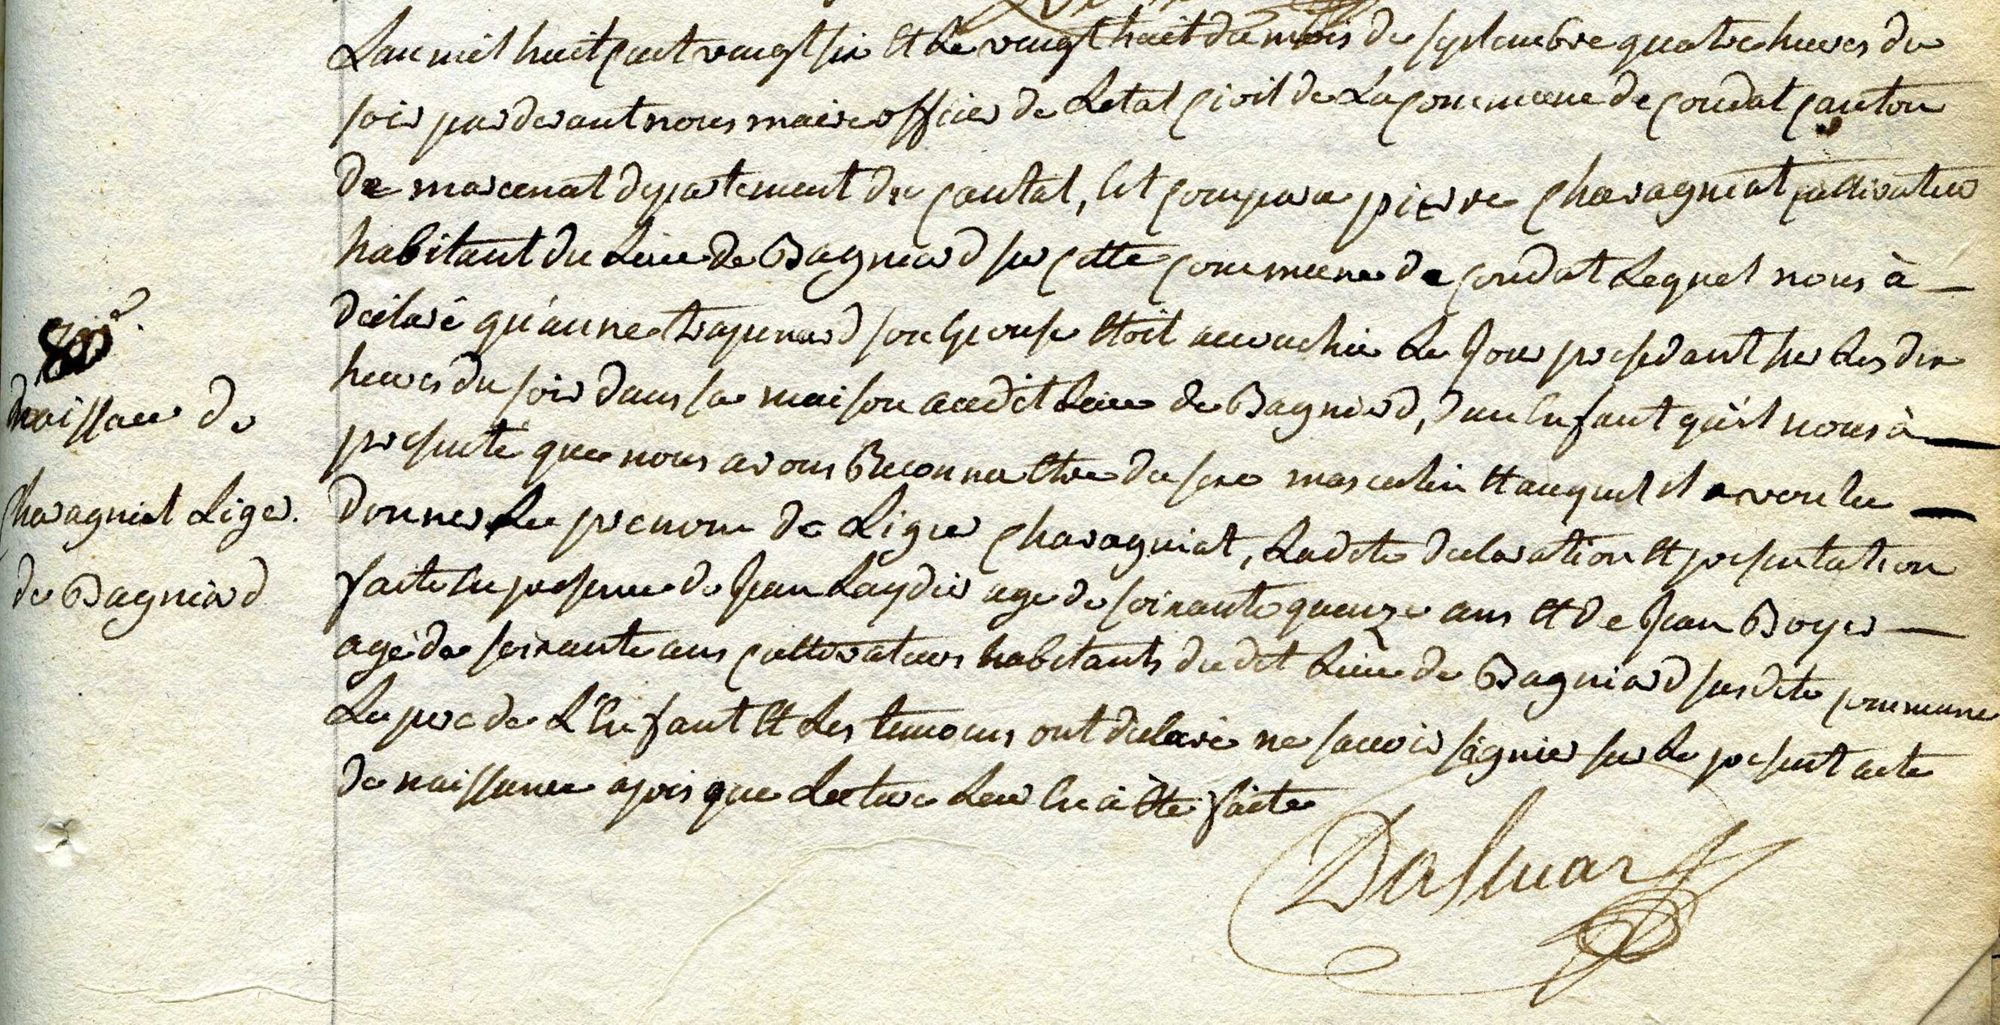 L'an mil huit cent vingt six et le vingt huit du mois de septembre quatre heures du
soir pardevant nous maire officier de Letat civil de La commune de condat canton
de marcenat departement du cantal, Est comparu pierre charagniat cultivateur
habitant du Lieu de Bagniard sur cette commune de condat Lequel nous à
declaré qu'anne trapenard son Epouse Etoit accouchée Le Jour precedant sur Les dix
heures du soir dans sa maison audit Lieu de Bagniard, d'un Enfant qu'il nous à
presenté que nous avons Reconnu Etre du sexe masculin Et auquel il a voulu
donner Le prenom de Liger charagniat, Ladite declaration Et presentation
faite En presence de Jean Laydier age de soixante quenze ans Et de Jean Boyer
agé de soixante ans cultivateurs habitants du dit Lieu de Bagniard susdite commune
Le pere de L'Enfant Et Les temoins ont declaré ne savoir signier sur Le present acte
de naissance apres que Lecture Leur En à Eté faite
naissance de
charagniat Liger.
de Bagniard